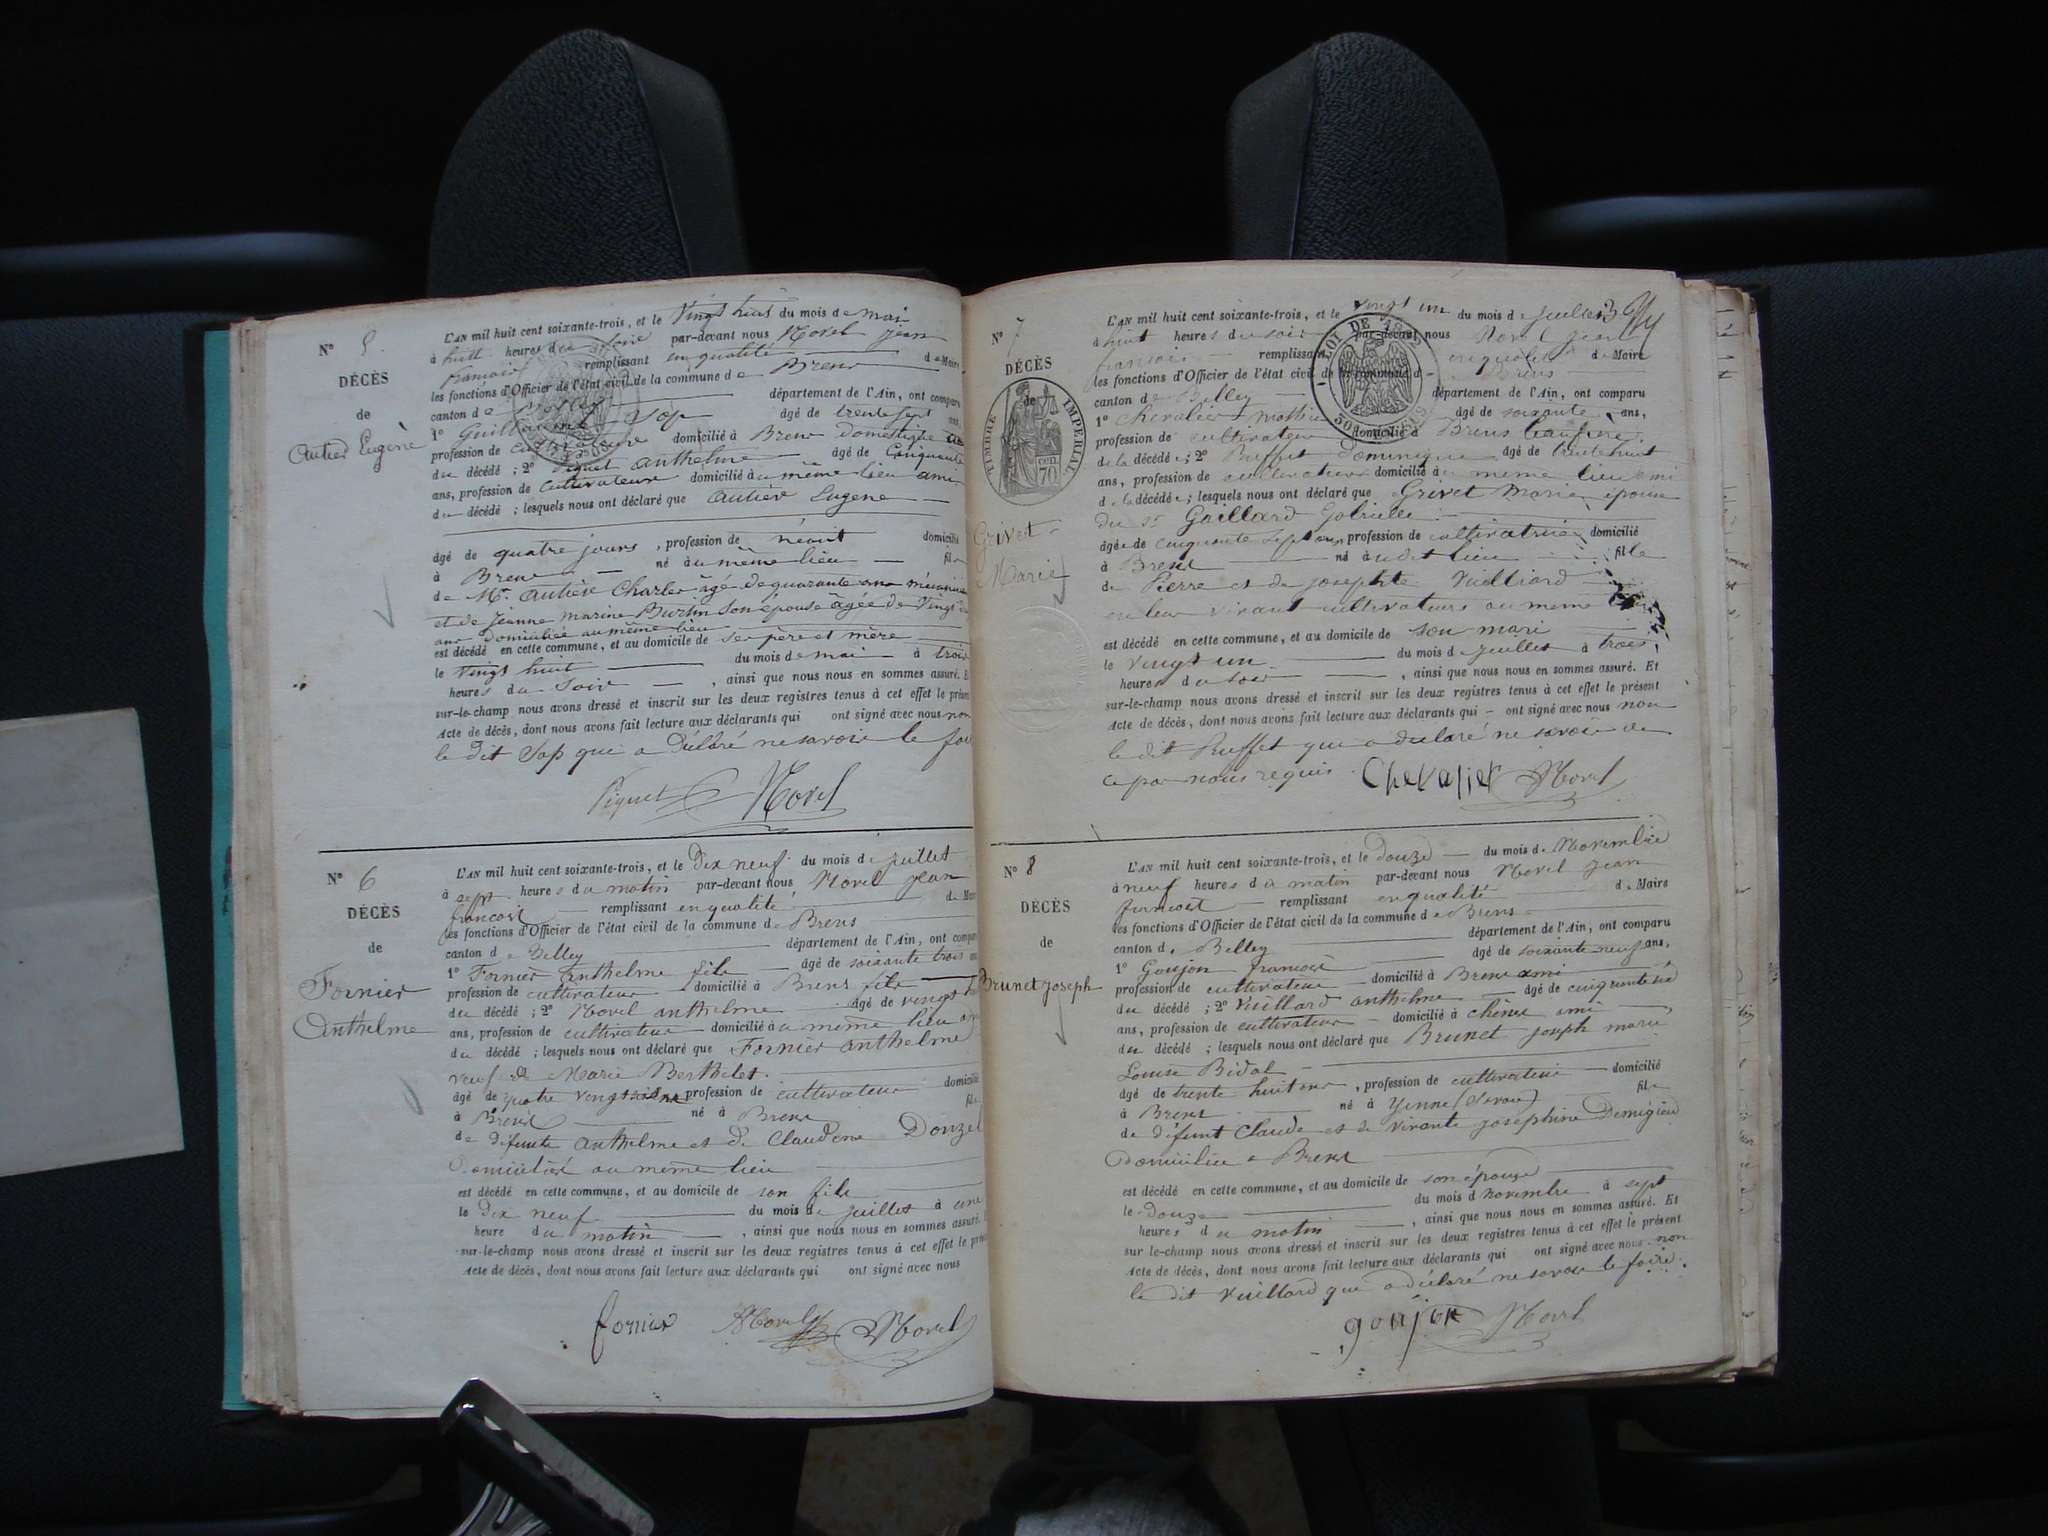 N° 5
DÉCÈS
de
Autier Eugène
L'AN mil huit cent soixante-trois, et le Vingt huit du mois de mai
à huit heures du soir par-devant nous Morel jean
francois remplissant en qualité de Maire
les fonctions d'Officier de l'état civil de la commune de Brens
canton de Belley département de l'Ain, ont comparu
1° Guillaume Sap âgé de trente sept ans,
profession de cultivateur domicilié à Brens Domestique
du décédé ; 2° Piquet anthelme âgé de Cinquante
ans, profession de cultivateur domicilié à u même lieu ami
du décédé ; lesquels nous ont déclaré que Autièr Eugene
âgé de quatre jours , profession de néant domicilié
à Brens né à u même lieu fils
de Mr. Autièr Charles âgé de quarante ans
et de Jeanne Marine Burtin son épouse âgée de Vingt
ans domiciliée au même lieu
est décédé en cette commune, et au domicile de ses père et mère
le Vingt huit du mois de mai à trois
heures du Soir , ainsi que nous nous en sommes assuré. Et
sur-le-champ nous avons dressé et inscrit sur les deux registres tenus à cet effet le présent
Acte de décès, dont nous avons fait lecture aux déclarants qui ont signé avec nous non
le dit Sap qui a Déclaré ne savoir le faire
Piquet Morel
N° 6
DÉCÈS
de
Fornier
Anthelme
L'AN mil huit cent soixante-trois, et le Dix neuf du mois de juillet
à sept heures du matin par-devant nous Morel jean
francois remplissant en qualité de Maire
les fonctions d'Officier de l'état civil de la commune de Brens
canton de Belley département de l'Ain, ont comparu
1° Fornier anthelme fils âgé de soixante trois ans
profession de cultivateur domicilié à Brens fils
du décédé ; 2° Morel anthelme âgé de vingt
ans, profession de cultivateur domicilié à u même lieu ami
du décédé ; lesquels nous ont déclaré que Fornier anthelme
veuf de Marie Berthelet
âgé de quatre vingt ans profession de cultivateur domicilié
à Brens né à Brens fils
de défunts anthelme et de Claudene Donzel
Domiciliés au même lieu
est décédé en cette commune, et au domicile de son fils
le Dix neuf du mois de juillet à une
heure du matin , ainsi que nous nous en sommes assuré. Et
sur-le-champ nous avons dressé et inscrit sur les deux registres tenus à cet effet le présent
Acte de décès, dont nous avons fait lecture aux déclarants qui ont signé avec nous
fornier AMorel Morel
N° 7
DÉCÈS
de
TIMBRE IMPÉRIAL
70
Grivet
Marie
LOI DE
L'AN mil huit cent soixante-trois, et le vingt un du mois de juillet
à huit heures du soir par-devant nous Morel jean
francois remplissant en qualité de Maire
les fonctions d'Officier de l'état civil de la commune de Brens
canton de Belley département de l'Ain, ont comparu
1° Chevalier Mathieu âgé de soixante ans,
profession de cultivateur domicilié à Brens beaufrère
de la décédée ; 2° Buffet Dominique âgé de trente huit
ans, profession de cultivateur domicilié à u même lieu ami
de la décédée ; lesquels nous ont déclaré que Grivet Marie épouse
du sr Gaillard
âgée de cinquante sept ans profession de cultivatrice domicilié
à Brens né à u dit lieu fille
de Pierre et de josephte Vuilliard
en leur vivant cultivateurs au même lieu
est décédé en cette commune, et au domicile de son mari
le vingt un du mois de juillet à trois
heures du soir , ainsi que nous nous en sommes assuré. Et
sur-le-champ nous avons dressé et inscrit sur les deux registres tenus à cet effet le présent
Acte de décès, dont nous avons fait lecture aux déclarants qui ont signé avec nous non
le dit Buffet qui a déclaré ne savoir de
ce par nous requis. Chevalier Morel
N° 8
DÉCÈS
de
Brunet joseph
L'AN mil huit cent soixante-trois, et le douze du mois de Novembre
à neuf heures du matin par-devant nous Morel jean
francois remplissant en qualité de Maire
les fonctions d'Officier de l'état civil de la commune de Brens
canton de Belley département de l'Ain, ont comparu
1° Goujon francois âgé de soixante neuf ans,
profession de cultivateur domicilié à Brens ami
du décédé ; 2° Vuillard anthelme âgé de cinquante
ans, profession de cultivateur domicilié à chênes ami
du décédé ; lesquels nous ont déclaré que Brunet joseph marie
Louise Bidal
âgé de trente huit ans , profession de cultivateur domicilié
à Brens né à Yenne (Savoie) fils
de défunt Claude et de vivante josephine Demigieu
Domiciliée à Brens
est décédé en cette commune, et au domicile de son épouse
le douze du mois d novembre à sept
heures du matin , ainsi que nous nous en sommes assuré. Et
sur-le-champ nous avons dressé et inscrit sur les deux registres tenus à cet effet le présent
Acte de décès, dont nous avons fait lecture aux déclarants qui ont signé avec nous non
le dit Vuillard qui a déclaré ne savoir le faire.
goujon Morel